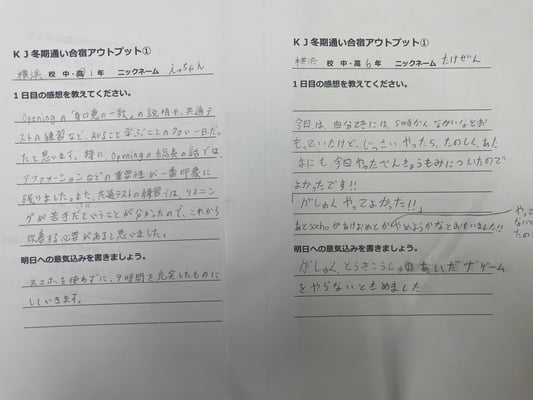 KJ冬期通い合宿アウトプット①
横浜 校 中・高 1年 ニックネーム えっちゃん
1日目の感想を教えてください。
Openingの「知恵の一歌」の説明や、共通テ
ストの練習など、知ること学ぶことの多い一日だっ
たと思います。特に、Openingの総長の話では、
アファメーションなどの重要性が一番印象に
残りました。また、共通テストの練習では、リスニン
グが苦手だということが分かたので、これから
改善する必要があると思いました。
明日への意気込みを書きましょう。
スマホを使わずに、9時間を充実したものに
していきます。
KJ冬期通い合宿アウトプット①
横浜 校 中・高 6年 ニックネーム たけぜん
1日目の感想を教えてください。
今日は、自分てきには、5時かんながいなとお
もっていたけど、じっさいやったら、たのしく、あた
まにも今日やったべんきょうもみについたので
よかったです!!
「がしゅくやってよかった!!」
明日への意気込みを書きましょう。
がしゅく、とうきこうしゅうのあいだずゲーム
をやらないときめました